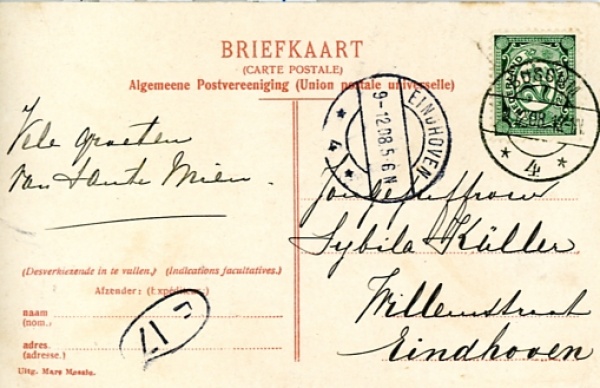 BRIEFKAART
(CARTE POSTALE)
Algemeene Postvereeniging (Union postale universelle)
EINDHOVEN
9-12.08.5-6N
* 4 *
* 4 *
Vele groeten
van tante Mien.
Jongejuffrouw
Sybila Küller
Willemstraat
Eindhoven
(Desverkiezende in te vullen.) (Indications facultatives.)
Afzender: (Expéditeur.)
naam
(nom.)
adres.
(adresse.)
F 17
Uitg. Mare Mosain.